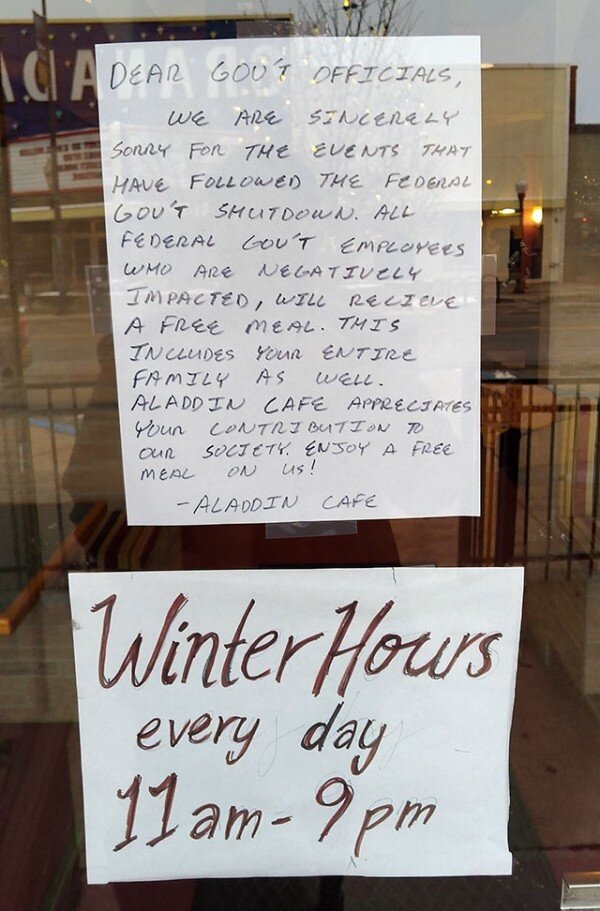 DEAR GOU'T OFFICIALS,
WE ARE SINCERELY
SORRY FOR THE EVENTS THAT
HAVE FOLLOWED THE FEDERAL
GOU'T SHUTDOWN. ALL
FEDERAL GOU'T EMPLOYEES
WHO ARE NEGATIVELY
IMPACTED, WILL RECIEVE
A FREE MEAL. THIS
INCLUDES YOUR ENTIRE
FAMILY AS WELL.
ALADDIN CAFE APPRECIATES
YOUR CONTRIBUTION TO
OUR SOCIETY. ENJOY A FREE
MEAL ON US!
-ALADDIN CAFE
Winter Hours
every day
11am - 9pm